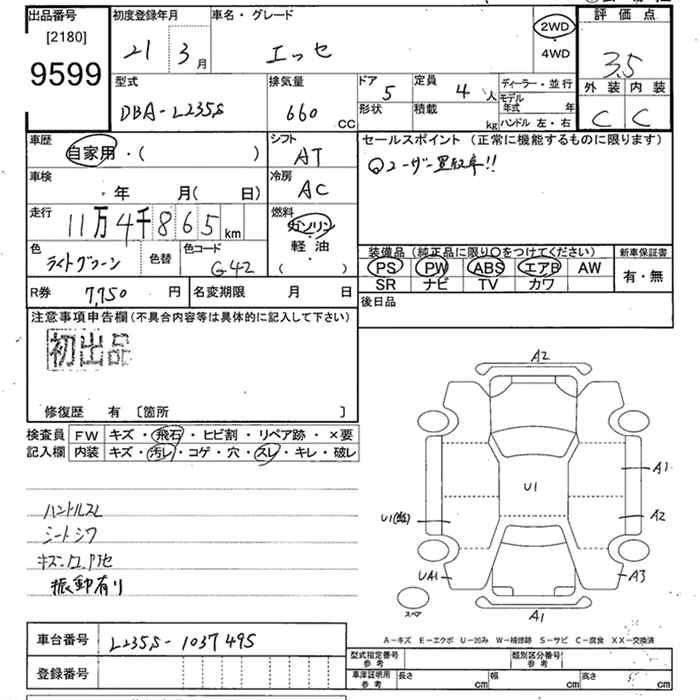 出品番号
[2180]
9599
初度登録年月
21 3月
車名・グレード
エッセ
2WD
4WD
評価点
3.5
外装 内装
C C
型式
DBA-L235S
排気量
660 CC
ドア
5
形状
定員
4 人
積載
kg
ディーラー・並行
モデル年式 年
ハンドル 左・右
車歴
自家用・( )
シフト
AT
セールスポイント (正常に機能するものに限ります)
ユーザー買取車!!
車検
年 月( 日)
冷房
AC
走行
11万4千865 km
燃料
ガソリン
軽・油
・( )
色
ライトグリーン
色替
色コード
G42
装備品 (純正品に限り○をつけてください)
PS PW ABS エアB AW
SR ナビ TV カワ
新車保証書
有・無
R券 7,750 円
名変期限 月 日
後日品
注意事項申告欄(不具合内容等は具体的に記入して下さい)
初出品
修復歴 有 〔箇所 〕
検査員記入欄
FW キズ・飛石・ヒビ割・リペア跡・×要
内装 キズ・汚レ・コゲ・穴・スレ・キレ・破レ
ハンドルスレ
シートシワ
振動有り
A2
A1
U1
A2
U1
UA1
A3
スペア
A1
A-キズ E-エクボ U-凹み W-補修跡 S-サビ C-腐食 XX-交換済
車台番号 L235S-1037495
登録番号
型式指定番号 参考
類別区分番号 参考
車庫証明用 参考
長さ cm 幅 cm 高さ cm